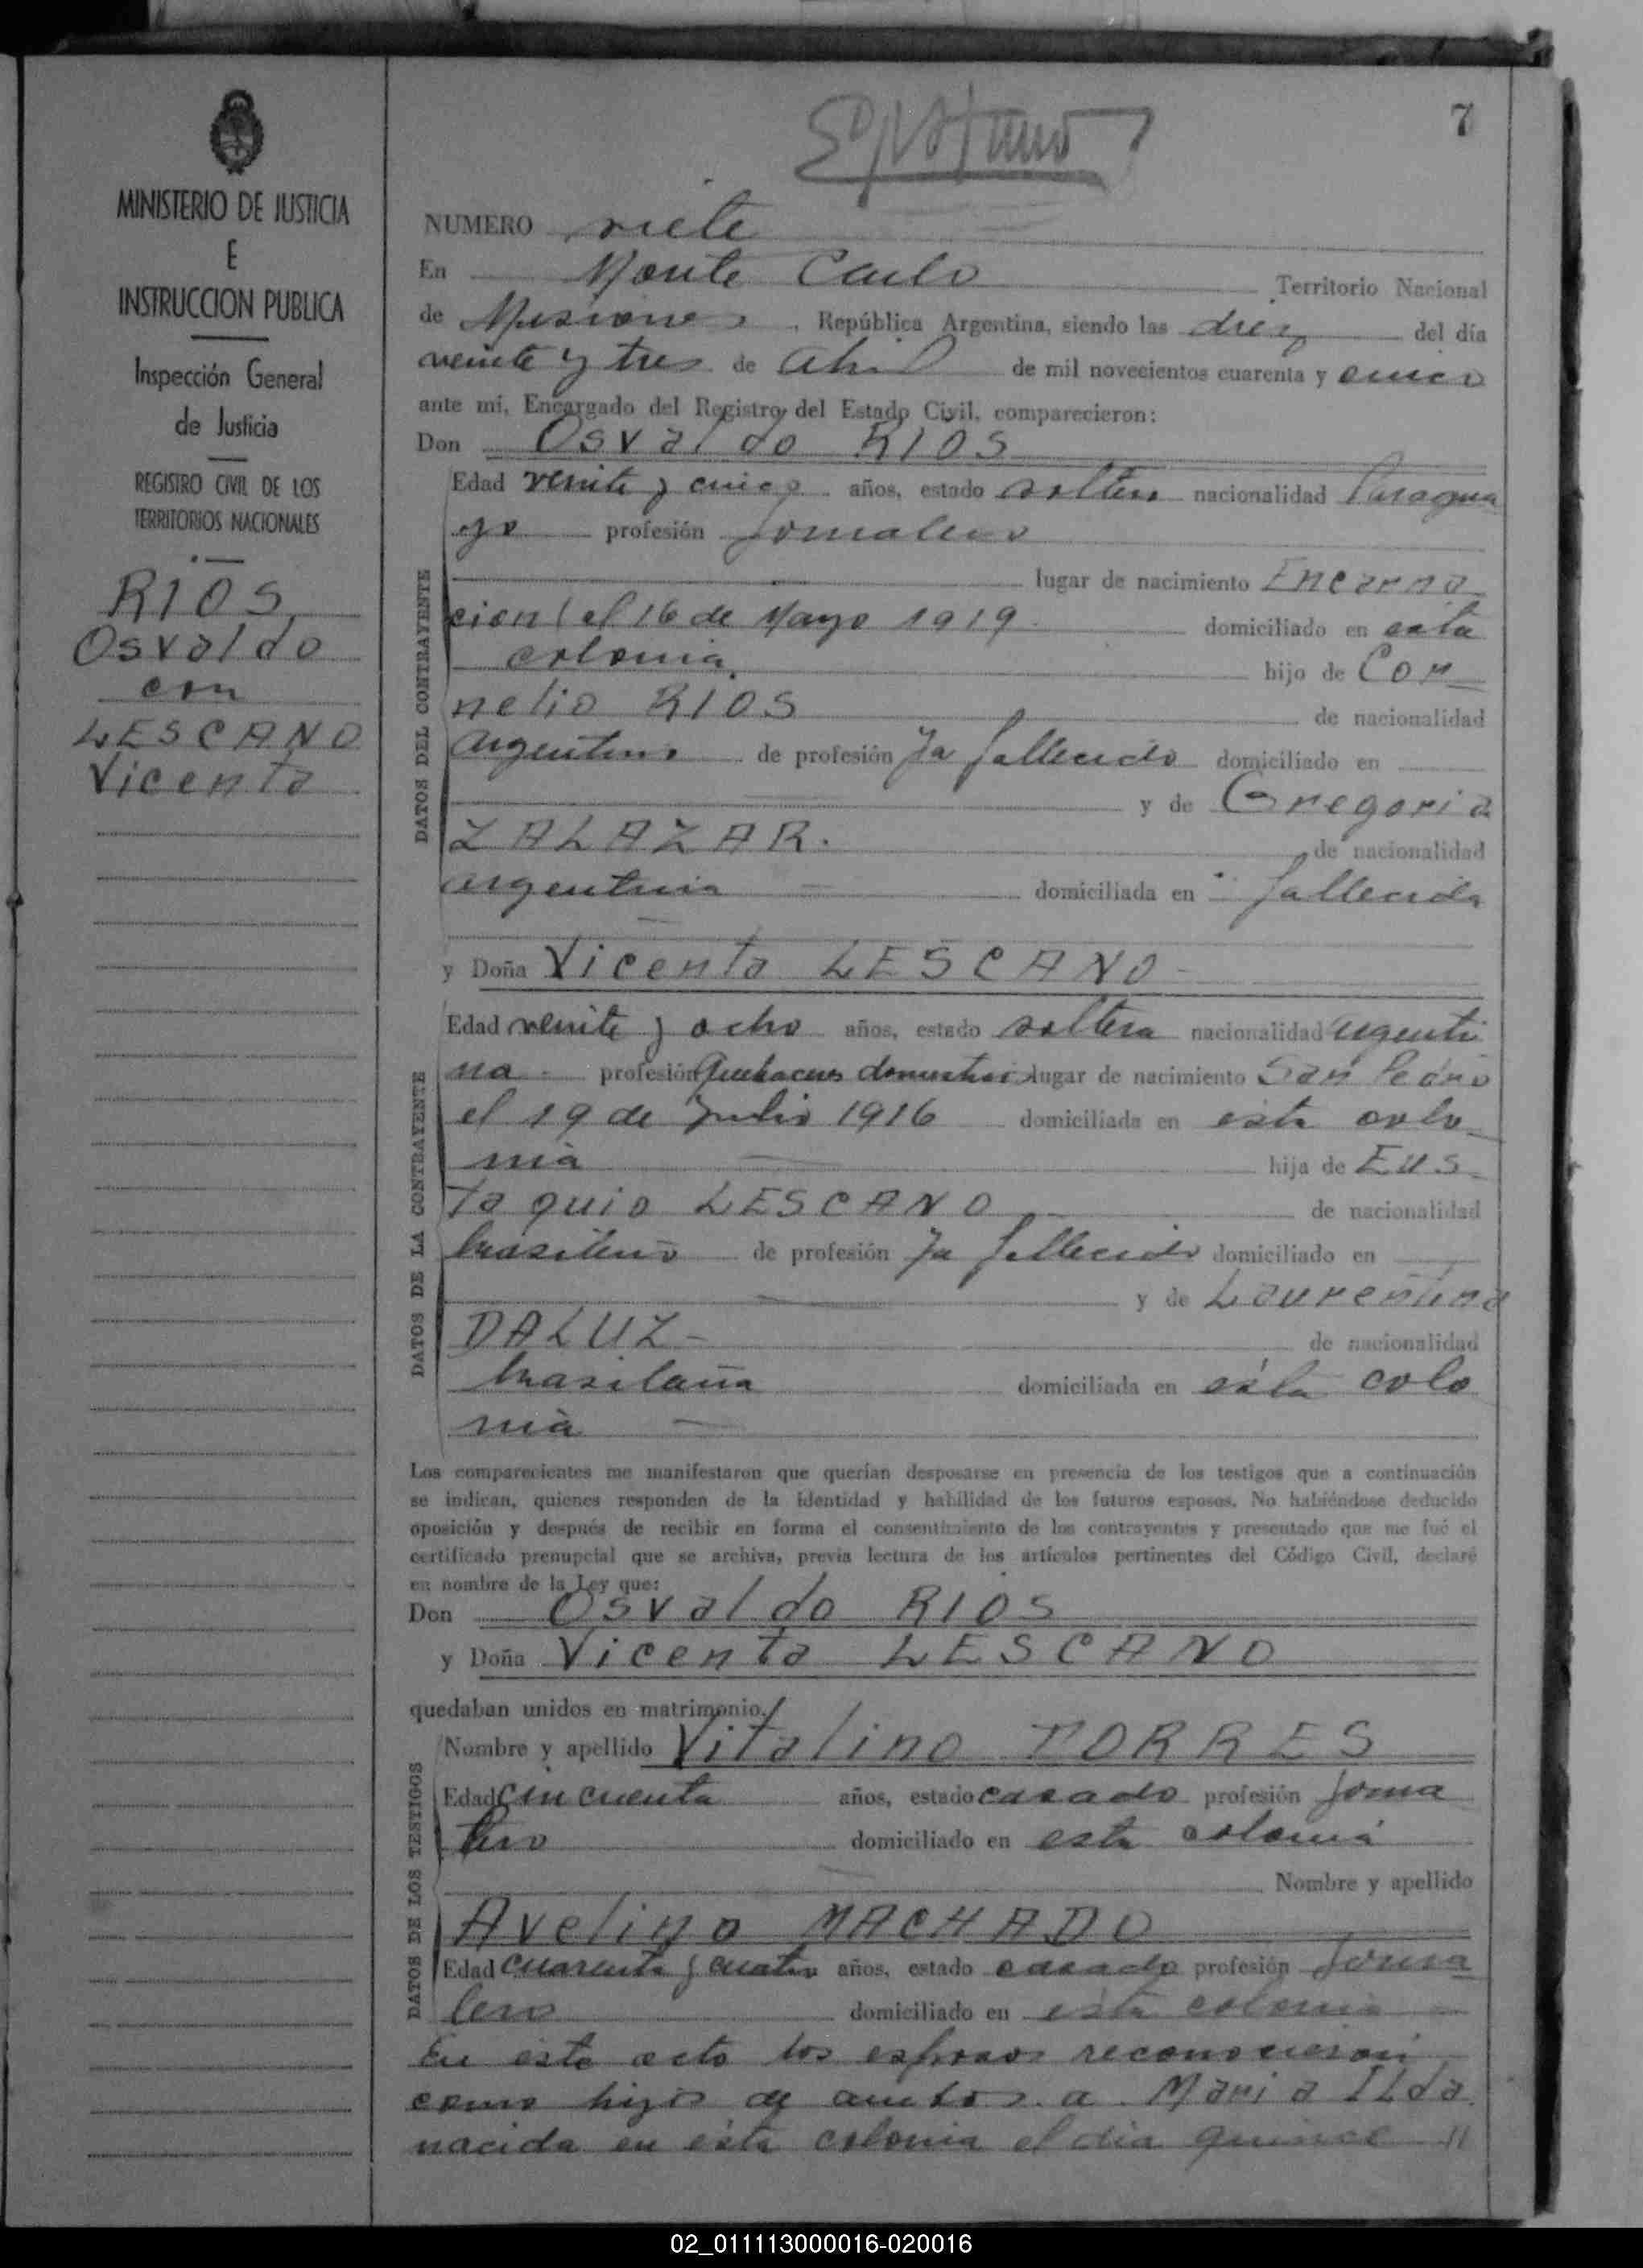 7
MINISTERIO DE JUSTICIA
E
INSTRUCCION PUBLICA
Inspección General
de Justicia
REGISTRO CIVIL DE LOS
TERRITORIOS NACIONALES
RIOS,
Osvaldo
con
LESCANO
Vicenta
NUMERO siete
En Monte Carlo Territorio Nacional
de Misiones, República Argentina, siendo las diez del día
veinte y tres de Abril de mil novecientos cuarenta y cinco
ante mí, Encargado del Registro del Estado Civil, comparecieron:
Don Osvaldo RIOS
DATOS DEL CONTRAYENTE
Edad veinte y cinco años, estado soltero nacionalidad Paragua
yo profesión Jornalero
lugar de nacimiento Encarna
cion el 16 de Mayo 1919 domiciliado en esta
colonia hijo de Cor
nelio RIOS de nacionalidad
argentino de profesión Ya fallecido domiciliado en
y de Gregoria
ZALAZAR. de nacionalidad
argentina domiciliada en fallecida
y Doña Vicenta LESCANO
DATOS DE LA CONTRAYENTE
Edad veinte y ocho años, estado soltera nacionalidad argenti
na profesión Quehaceres domesticos lugar de nacimiento San Pedro
el 19 de Julio 1916 domiciliada en esta colo
nia hija de Eus
taquio LESCANO de nacionalidad
brasileño de profesión Ya fallecido domiciliado en
y de Laurentina
DALUZ de nacionalidad
brasilaña domiciliada en ésta colo
nia
Los comparecientes me manifestaron que querían desposarse en presencia de los testigos que a continuación
se indican, quienes responden de la identidad y habilidad de los futuros esposos. No habiéndose deducido
oposición y después de recibir en forma el consentimiento de los contrayentes y presentado que me fué el
certificado prenupcial que se archiva, previa lectura de los artículos pertinentes del Código Civil, declaré
en nombre de la Ley que:
Don Osvaldo RIOS
y Doña Vicenta LESCANO
quedaban unidos en matrimonio.
DATOS DE LOS TESTIGOS
Nombre y apellido Vitalino TORRES
Edad Cincuenta años, estado casado profesión Jorna
lero domiciliado en esta colonia
Nombre y apellido
Avelino MACHADO
Edad cuarenta y cuatro años, estado casado profesión Jorna
lero domiciliado en esta colonia
En este acto los esposos reconocieron
como hijos de ambos a Maria ILda
nacida en ésta colonia el dia quince
02_011113000016-020016